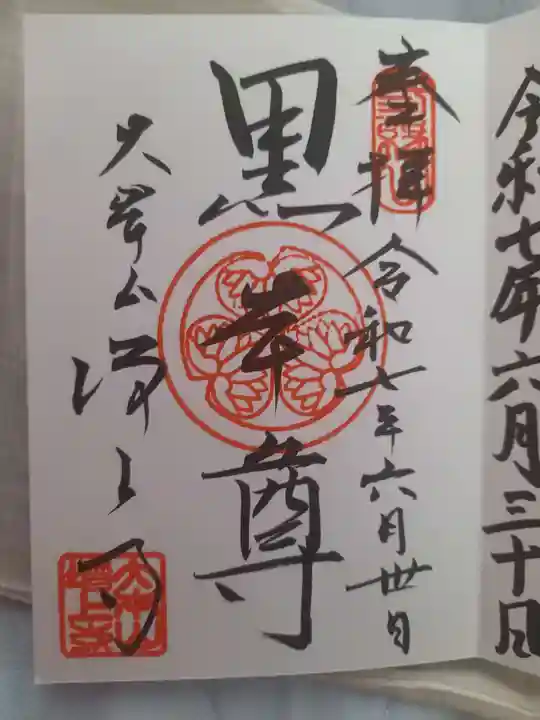 令和七年六月三十日
奉拝 令和七年六月卅日
黒本尊
大本山増上寺
大本山
増上寺